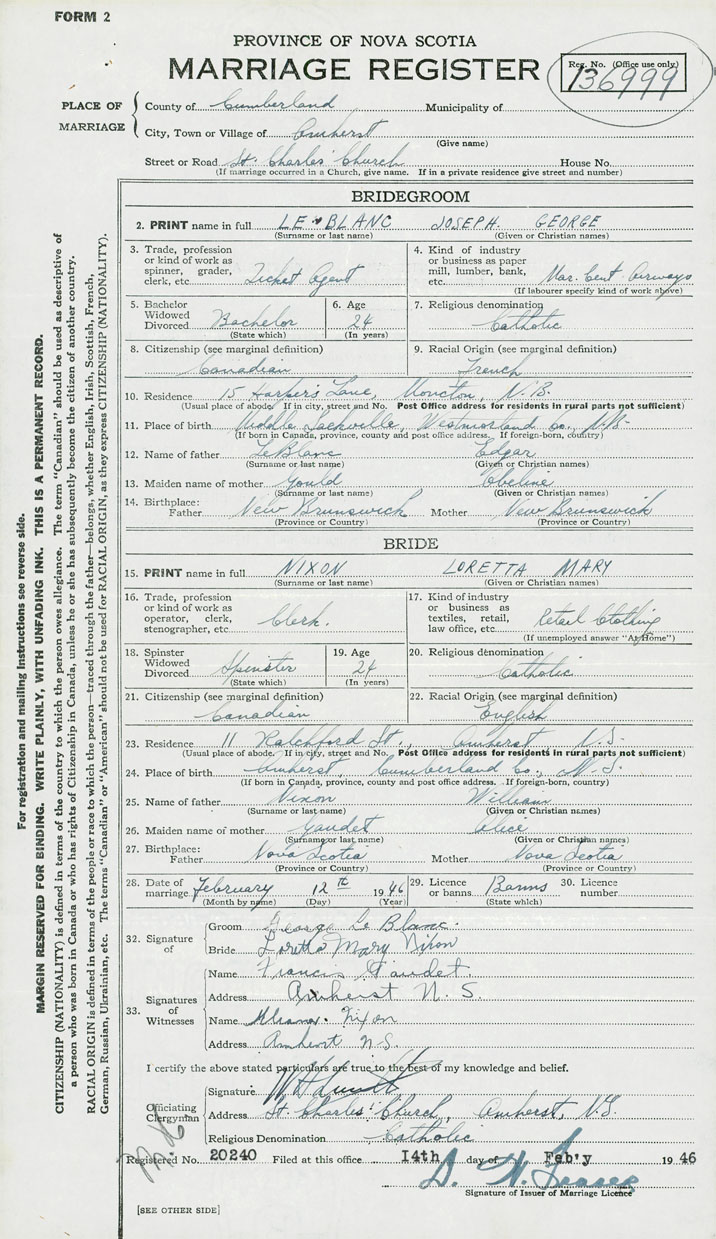 FORM 2
PROVINCE OF NOVA SCOTIA
MARRIAGE REGISTER
Reg. No. (Office use only)
136999
PLACE OF MARRIAGE
County of Cumberland Municipality of
City, Town or Village of Amherst
(Give name)
Street or Road St. Charles' Church House No.
(If marriage occurred in a Church, give name. If in a private residence give street and number)
BRIDEGROOM
2. PRINT name in full LE BLANC JOSEPH. GEORGE
(Surname or last name) (Given or Christian names)
3. Trade, profession or kind of work as spinner, grader, clerk, etc. Ticket Agent
4. Kind of industry or business as paper mill, lumber, bank, etc. Mar. Cent. Airways
(If labourer specify kind of work above)
5. Bachelor Widowed Divorced Bachelor
(State which)
6. Age 24
(In years)
7. Religious denomination
Catholic
8. Citizenship (see marginal definition)
Canadian
9. Racial Origin (see marginal definition)
French
10. Residence 15 Harper's Lane, Moncton, N.B.
(Usual place of abode. If in city, street and No. Post Office address for residents in rural parts not sufficient)
11. Place of birth Middle Sackville, Westmorland Co., N.B.
(If born in Canada, province, county and post office address. If foreign-born, country)
12. Name of father LeBlanc Edgar
(Surname or last name) (Given or Christian names)
13. Maiden name of mother Gould Obeline
(Surname or last name) (Given or Christian names)
14. Birthplace: Father New Brunswick Mother New Brunswick
(Province or Country) (Province or Country)
BRIDE
15. PRINT name in full NIXON LORETTA MARY
(Surname or last name) (Given or Christian names)
16. Trade, profession or kind of work as operator, clerk, stenographer, etc Clerk.
17. Kind of industry or business as textiles, retail, law office, etc. Retail Clothing
(If unemployed answer "At Home")
18. Spinster Widowed Divorced Spinster
(State which)
19. Age 24
(In years)
20. Religious denomination
Catholic
21. Citizenship (see marginal definition)
Canadian
22. Racial Origin (see marginal definition)
English
23. Residence 11 Ratchford St., Amherst N.S.
(Usual place of abode. If in city, street and No. Post Office address for residents in rural parts not sufficient)
24. Place of birth Amherst, Cumberland Co., N.S.
(If born in Canada, province, county and post office address. If foreign-born, country)
25. Name of father Nixon William
(Surname or last name) (Given or Christian names)
26. Maiden name of mother Gaudet Alice
(Surname or last name) (Given or Christian names)
27. Birthplace: Father Nova Scotia Mother Nova Scotia
(Province or Country) (Province or Country)
28. Date of marriage February 12th 1946
(Month by name) (Day) (Year)
29. Licence or banns Banns
(State which)
30. Licence number
32. Signature of
Groom George Le Blanc.
Bride Loretta Mary Nixon
33. Signatures of Witnesses
Name Francis Gaudet.
Address Amherst N. S.
Name Nixon
Address Amherst N.S.
I certify the above stated particulars are true to the best of my knowledge and belief.
Officiating Clergyman
Signature
Address St. Charles' Church, Amherst, N.S.
Religious Denomination Catholic
Registered No. 20240 Filed at this office 14th day of Feb'y 1946
Signature of Issuer of Marriage Licence
[SEE OTHER SIDE]
For registration and mailing instructions see reverse side.
MARGIN RESERVED FOR BINDING. WRITE PLAINLY, WITH UNFADING INK. THIS IS A PERMANENT RECORD.
CITIZENSHIP (NATIONALITY) is defined in terms of the country to which the person owes allegiance. The term "Canadian" should be used as descriptive of
a person who was born in Canada or who has rights of Citizenship in Canada, unless he or she has subsequently become the citizen of another country.
RACIAL ORIGIN is defined in terms of the people or race to which the person—traced through the father—belongs, whether English, Irish, Scottish, French,
German, Russian, Ukrainian, etc. The terms "Canadian" or "American" should not be used for RACIAL ORIGIN, as they express CITIZENSHIP (NATIONALITY).